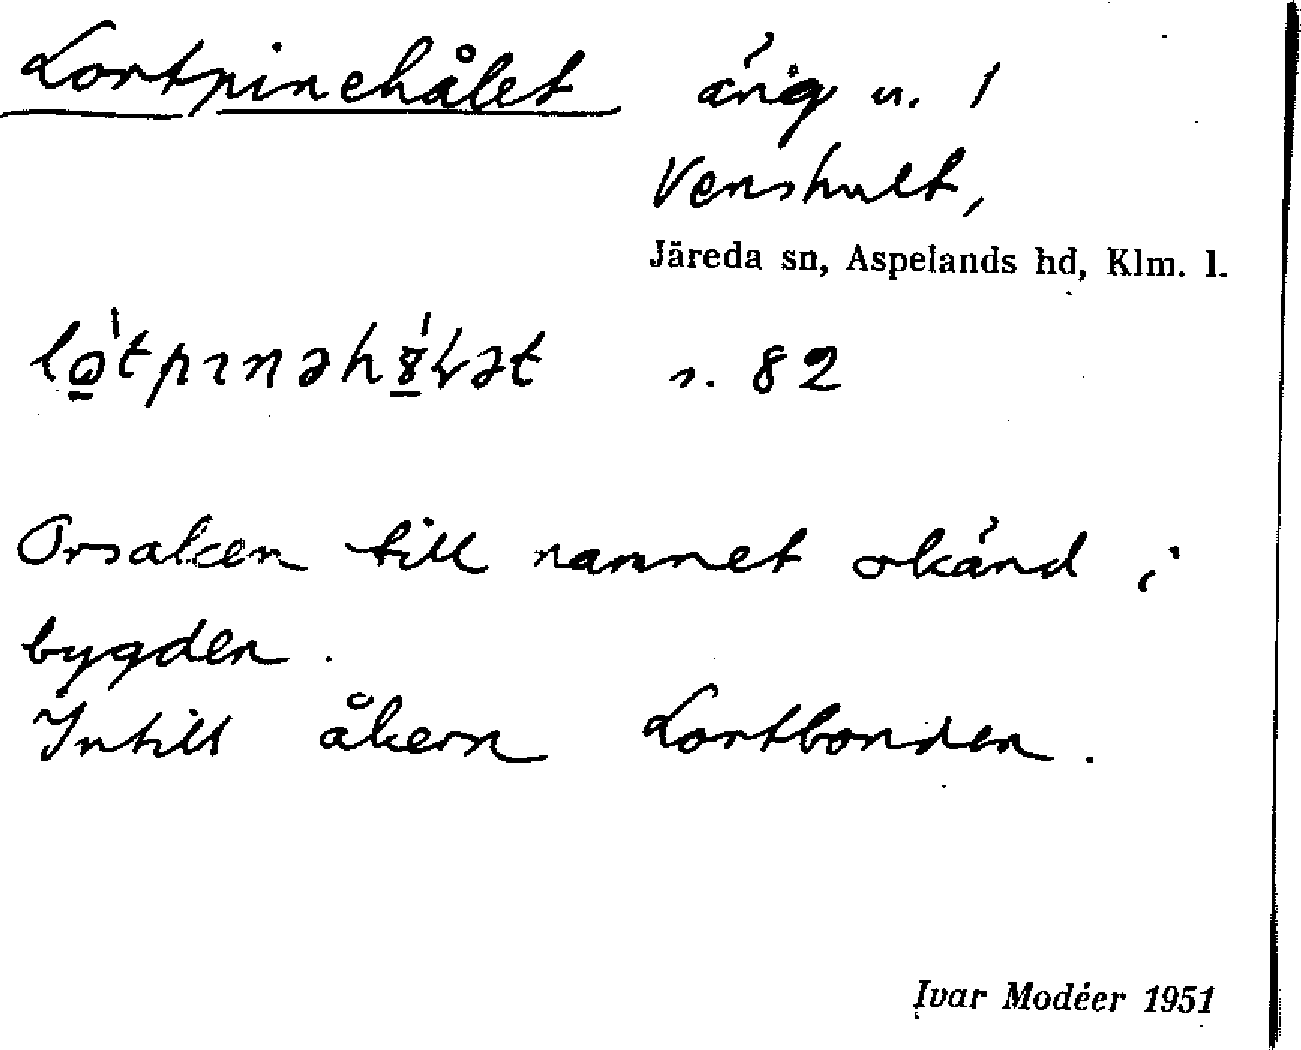 Lortpinehålet äng n. 1
Venshult,
Järeda sn, Aspelands hd, Klm. l.
s. 82
Orsaken till namnet okänd i
bygden.
Intill åkern Lortbonden.
Ivar Modéer 1951